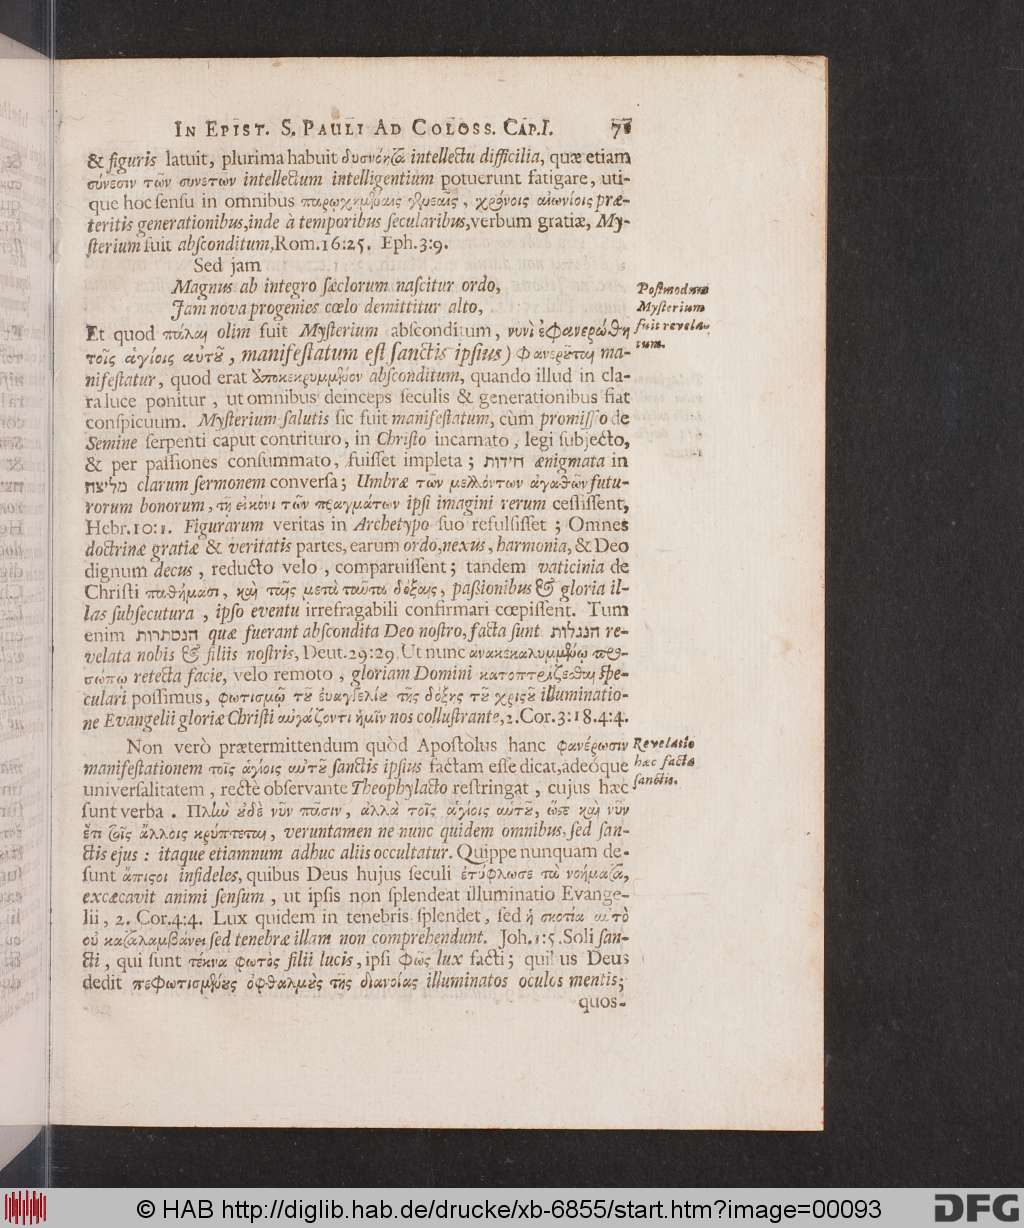 IN EPIST. S. PAULI AD COLOSS. CAP. I.
& figuris latuit, plurima habuit δυσνόητα intellectu difficilia, quæ etiam
σύνεσιν τῶν συνετῶν intellectum intelligentium potuerunt fatigare, uti-
que hoc sensu in omnibus παρῳχημέναις γενεαῖς, χρόνοις αἰωνίοις præ-
teritis generationibus, inde à temporibus secularibus, verbum gratiæ, My-
sterium fuit absconditum, Rom. 16:25. Eph. 3:9.
Sed jam
Magnus ab integro sæclorum nascitur ordo,
Jam nova progenies cœlo demittitur alto,
Postmodum
Mysterium
fuit revela-
tum.
Et quod πάλαι olim fuit Mysterium absconditum, νυνὶ ἐφανερώθη
τοῖς ἁγίοις αὐτοῦ, manifestatum est sanctis ipsius) φανεροῦται ma-
nifestatur, quod erat ἀποκεκρυμμένον absconditum, quando illud in cla-
ra luce ponitur, ut omnibus deinceps seculis & generationibus fiat
conspicuum. Mysterium salutis sic fuit manifestatum, cùm promisso de
Semine serpenti caput contrituro, in Christo incarnato, legi subjecto,
& per passiones consummato, fuisset impleta; חידות ænigmata in
מליצת clarum sermonem conversa; Umbræ τῶν μελλόντων ἀγαθῶν futu-
rorum bonorum, τῇ εἰκόνι τῶν πραγμάτων ipsi imagini rerum cessissent,
Hebr. 10:1. Figurarum veritas in Archetypo suo refulsisset; Omnes
doctrinæ gratiæ & veritatis partes, earum ordo, nexus, harmonia, & Deo
dignum decus, reducto velo, comparuissent; tandem vaticinia de
Christi παθήμασι, καὶ ταῖς μετὰ ταῦτα δόξαις, passionibus & gloria il-
las subsecutura, ipso eventu irrefragabili confirmari cœpissent. Tum
enim הנסתרות quæ fuerant abscondita Deo nostro, facta sunt הנגלות re-
velata nobis & filiis nostris, Deut. 29:29. Ut nunc ἀνακεκαλυμμένῳ προ-
σώπῳ retecta facie, velo remoto, gloriam Domini κατοπτρίζεσθαι spe-
culari possimus, φωτισμῷ τοῦ εὐαγγελίου τῆς δόξης τοῦ χριστοῦ illuminatio-
ne Evangelii gloriæ Christi αὐγάζοντι ἡμῖν nos collustrante, 2. Cor. 3:18. 4:4.
Non verò prætermittendum quòd Apostolus hanc φανέρωσιν
manifestationem τοῖς ἁγίοις αὐτοῦ sanctis ipsius factam esse dicat, adeóque
universalitatem, rectè observante Theophylacto restringat, cujus hæc
Revelatio
hæc facta
sanctis.
sunt verba. Πλὴν οὐδὲ νῦν πᾶσιν, ἀλλὰ τοῖς ἁγίοις αὐτοῦ, ὥστε καὶ νῦν
ἔτι τοῖς ἄλλοις κρύπτεται, veruntamen ne nunc quidem omnibus, sed san-
ctis ejus: itaque etiamnum adhuc aliis occultatur. Quippe nunquam de-
sunt ἄπιστοι infideles, quibus Deus hujus seculi ἐτύφλωσε τὰ νοήματα,
excæcavit animi sensum, ut ipsis non splendeat illuminatio Evange-
lii, 2. Cor. 4:4. Lux quidem in tenebris splendet, sed ἡ σκοτία αὐτὸ
οὐ καταλαμβάνει sed tenebræ illam non comprehendunt. Joh. 1:5. Soli san-
cti, qui sunt τέκνα φωτὸς filii lucis, ipsi φῶς lux facti; quibus Deus
dedit πεφωτισμένους ὀφθαλμοὺς τῆς διανοίας illuminatos oculos mentis;
quos-
© HAB http://diglib.hab.de/drucke/xb-6855/start.htm?image=00093
DFG